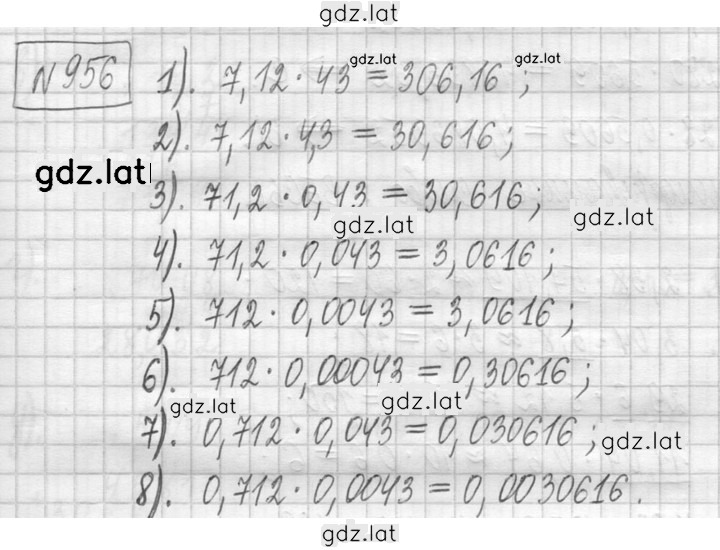 gdz.lat
N956 1). 7,12 · 43 = 306,16 ;
gdz.lat gdz.lat
2). 7,12 · 4,3 = 30,616 ;
gdz.lat
3). 71,2 · 0,43 = 30,616 ;
gdz.lat gdz.lat
4). 71,2 · 0,043 = 3,0616 ;
5). 712 · 0,0043 = 3,0616 ;
6). 712 · 0,00043 = 0,30616 ;
gdz.lat gdz.lat
7). 0,712 · 0,043 = 0,030616 ;
gdz.lat
8). 0,712 · 0,0043 = 0,0030616.
gdz.lat